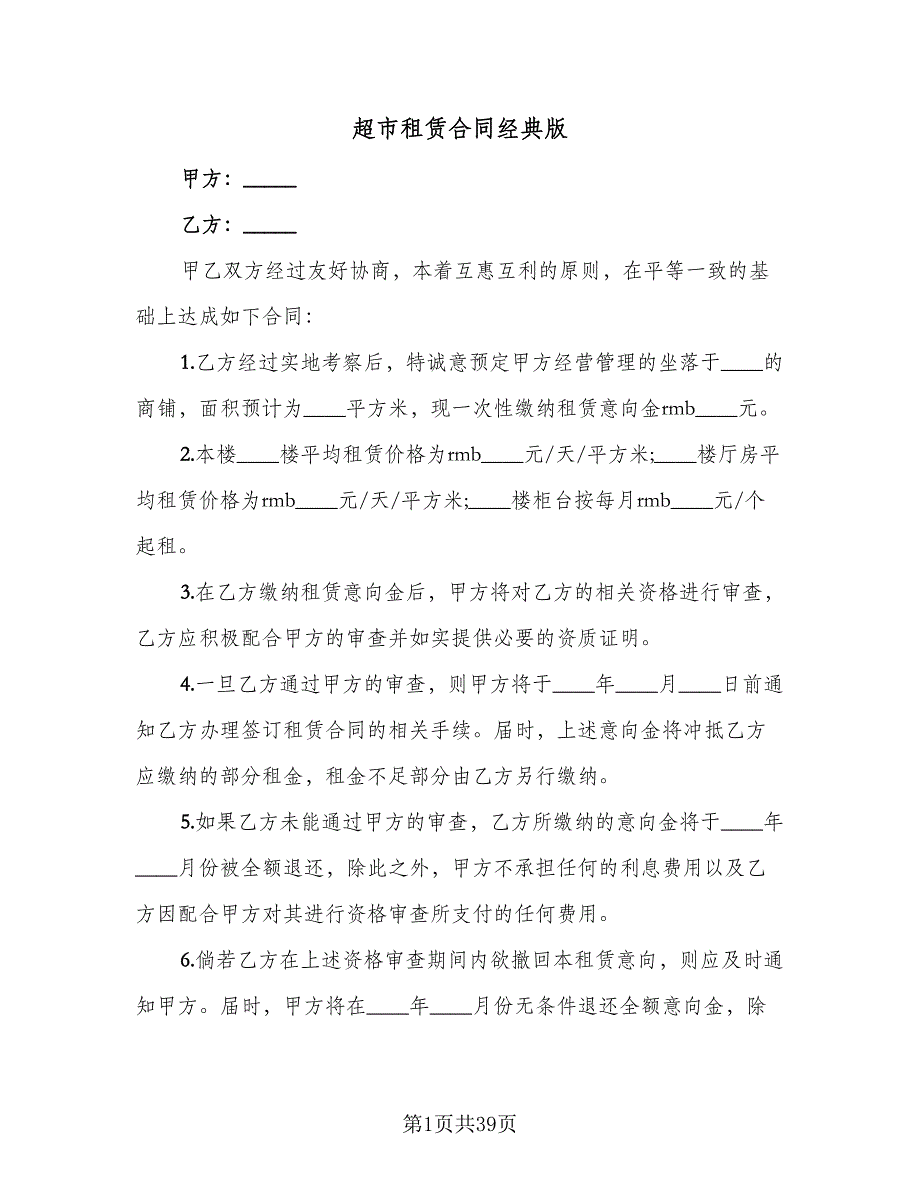 超市租赁合同经典版
甲方：_____
乙方：_____
甲乙双方经过友好协商，本着互惠互利的原则，在平等一致的基
础上达成如下合同：
1.乙方经过实地考察后，特诚意预定甲方经营管理的坐落于____的
商铺，面积预计为____平方米，现一次性缴纳租赁意向金rmb____元。
2.本楼____楼平均租赁价格为rmb____元/天/平方米;____楼厅房平
均租赁价格为rmb____元/天/平方米;____楼柜台按每月rmb____元/个
起租。
3.在乙方缴纳租赁意向金后，甲方将对乙方的相关资格进行审查，
乙方应积极配合甲方的审查并如实提供必要的资质证明。
4.一旦乙方通过甲方的审查，则甲方将于____年____月____日前通
知乙方办理签订租赁合同的相关手续。届时，上述意向金将冲抵乙方
应缴纳的部分租金，租金不足部分由乙方另行缴纳。
5.如果乙方未能通过甲方的审查，乙方所缴纳的意向金将于____年
____月份被全额退还，除此之外，甲方不承担任何的利息费用以及乙
方因配合甲方对其进行资格审查所支付的任何费用。
6.倘若乙方在上述资格审查期间内欲撤回本租赁意向，则应及时通
知甲方。届时，甲方将在____年____月份无条件退还全额意向金，除
第1页共39页